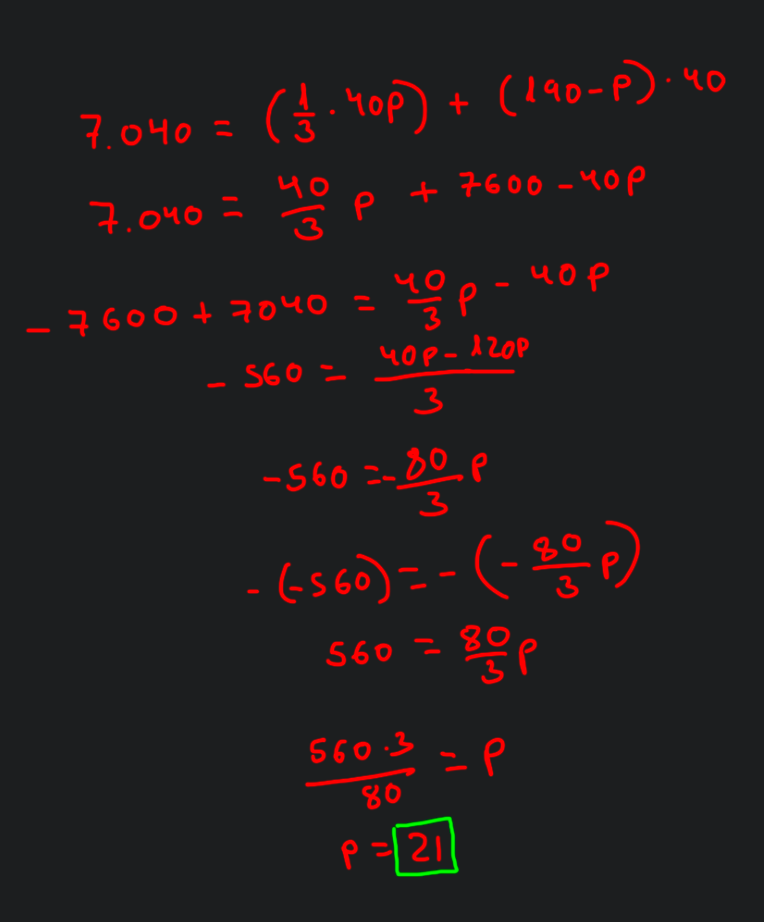 7.040 = (1/3 · 40p) + (190-p) · 40
7.040 = 40/3 p + 7600 - 40p
- 7600 + 7040 = 40/3 p - 40p
- 560 = (40p - 120p)/3
-560 = - 80/3 p
- (-560) = - (- 80/3 p)
560 = 80/3 p
560 · 3/80 = p
p = 21